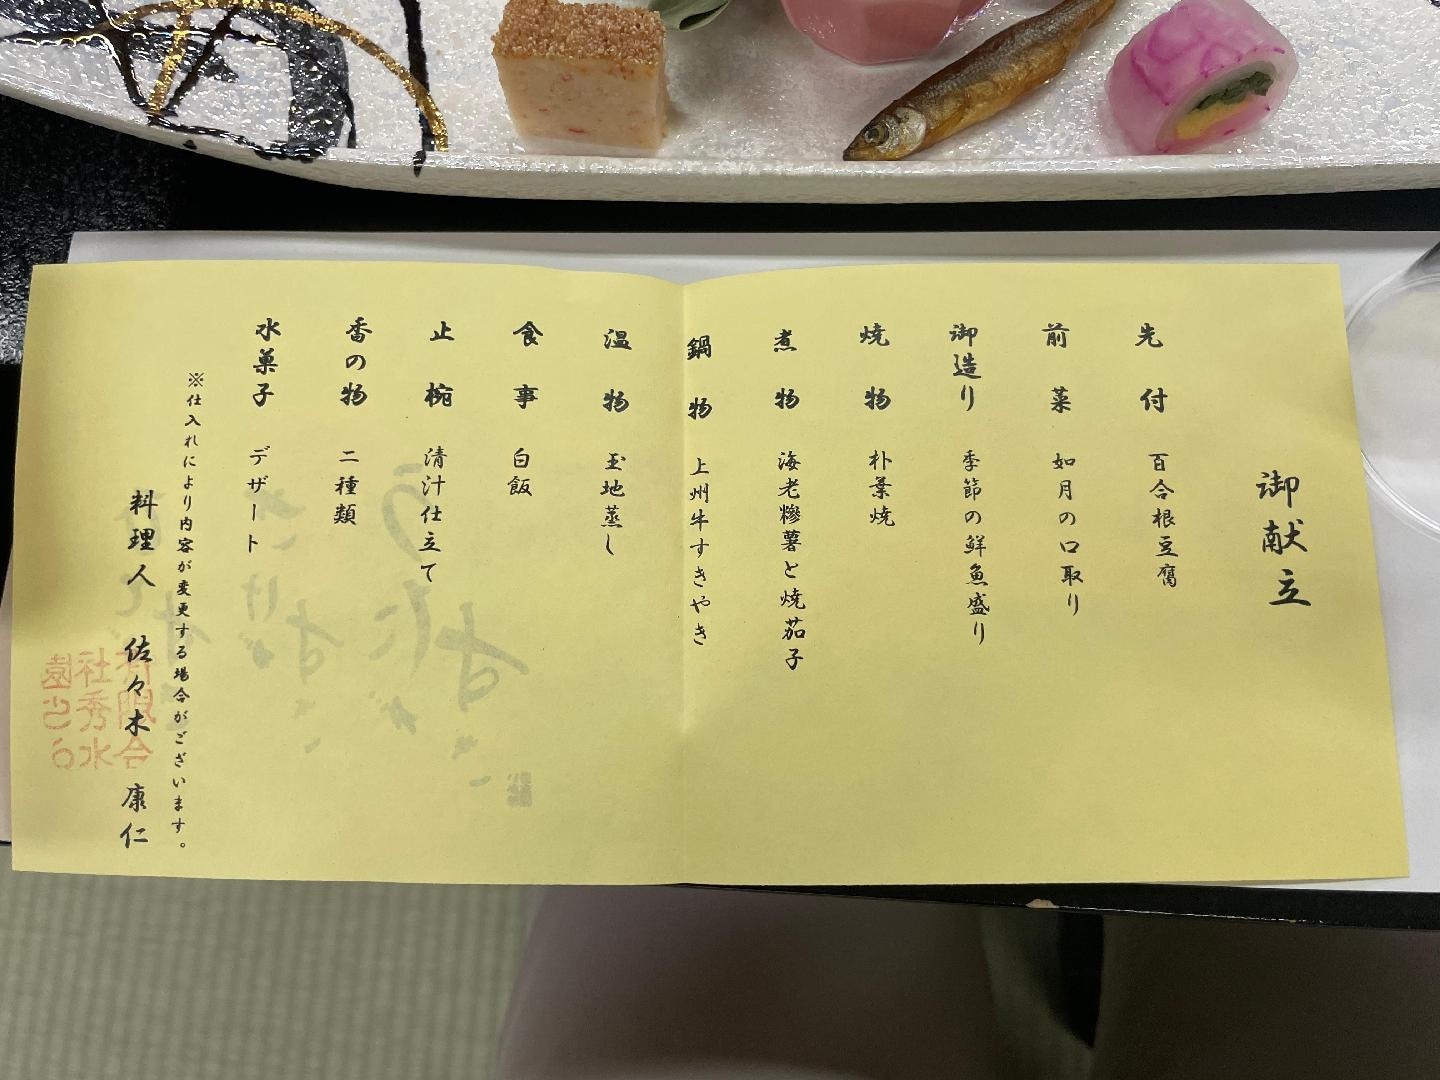 御献立
先付 百合根豆腐
前菜 如月の口取り
御造り 季節の鮮魚盛り
焼物 朴葉焼
煮物 海老糝薯と焼茄子
鍋物 上州牛すきやき
温物 玉地蒸し
食事 白飯
止椀 清汁仕立て
香の物 二種類
水菓子 デザート
※仕入れにより内容が変更する場合がございます。
料理人 佐々木 康仁